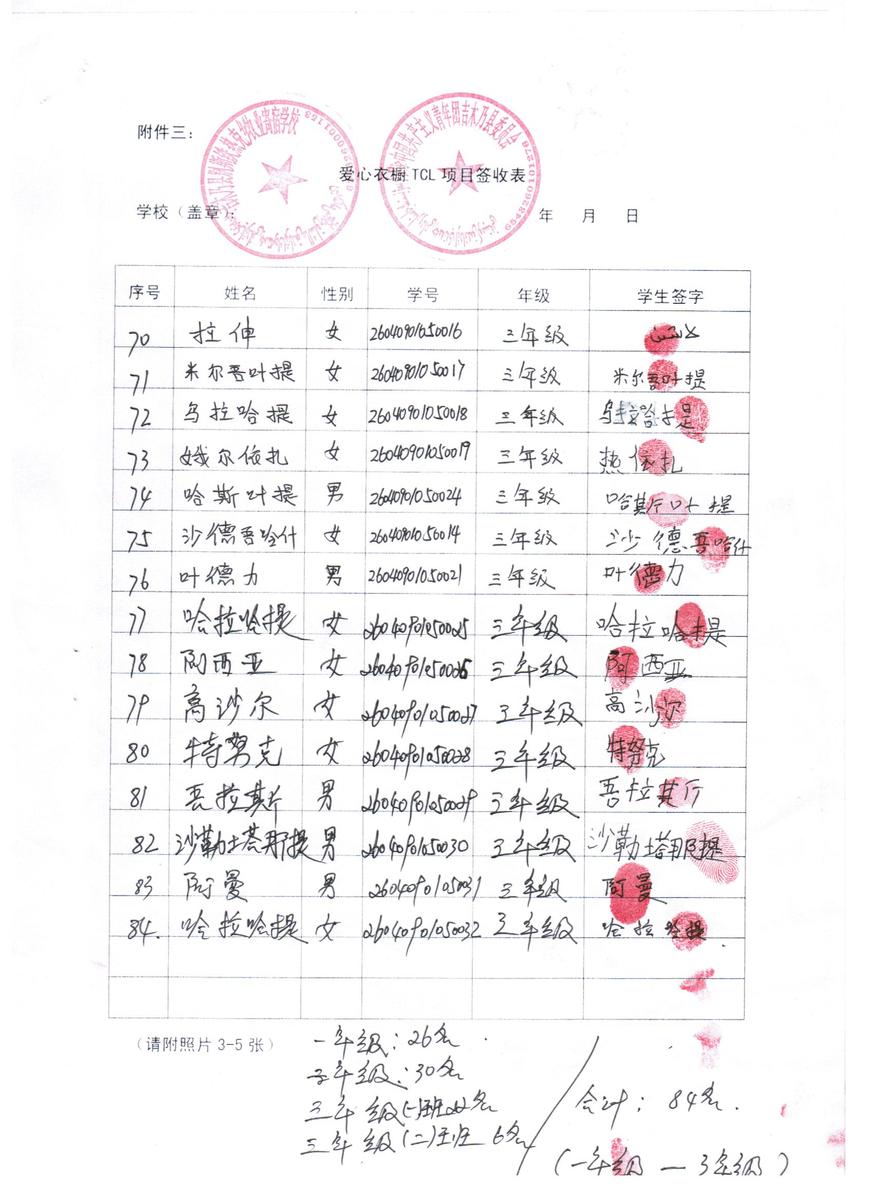 附件三:
爱心衣橱TCL项目签收表
学校(盖章): 年 月 日
序号 姓名 性别 学号 年级 学生签字
70 拉伸 女 26040901050016 三年级
71 米尔吾叶提 女 26040901050017 三年级 米尔吾叶提
72 乌拉哈提 女 26040901050018 三年级 乌拉哈提
73 娥尔依扎 女 26040901050019 三年级 热依扎
74 哈斯叶提 男 26040901050024 三年级 哈其斤叶提
75 沙德吾哈什 女 26040901050014 三年级 沙德吾哈什
76 叶德力 男 26040901050021 三年级 叶德力
77 哈拉哈提 女 26040901050025 三年级 哈拉哈提
78 阿西亚 女 26040901050026 三年级 阿西亚
79 高沙尔 女 26040901050027 三年级 高沙尔
80 特努克 女 26040901050028 三年级 特努克
81 吾拉斯 男 26040901050029 三年级 吾拉其斤
82 沙勒塔那提 男 26040901050030 三年级 沙勒塔那提
83 阿曼 男 26040901050031 三年级 阿曼
84. 哈拉哈提 女 26040901050032 三年级 哈拉哈提
(请附照片3-5张)
一年级:26名
二年级:30名
三年级(一)班22名
三年级(二)班6名
合计:84名.
(一年级—3年级)